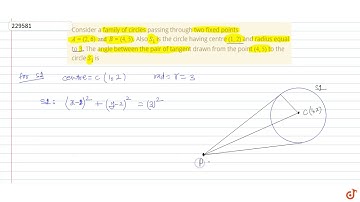 229581
Consider a family of circles passing through two fixed points
A = (2, 8) and B = (4, 9). Also S₁ is the circle having centre (1, 2) and radius equal
to 3. The angle between the pair of tangent drawn from the point (4, 5) to the
circle S₁ is
For S1 centre = C (1,2) radi = r = 3
S1: (x-1)² + (y-2)² = (3)²
S1
C(1,2)
P